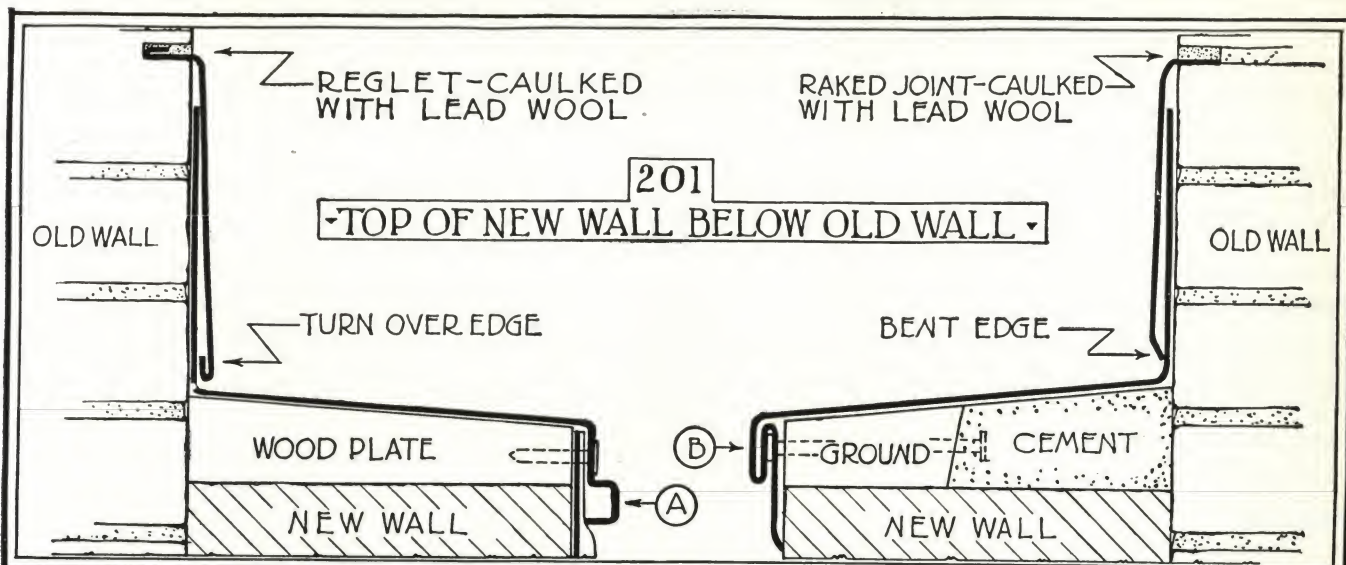 REGLET-CAULKED
WITH LEAD WOOL.
RAKED JOINT-CAULKED
WITH LEAD WOOL
201
-TOP OF NEW WALL BELOW OLD WALL-
OLD WALL
OLD WALL
TURN OVER EDGE
BENT EDGE
WOOD PLATE
B
GROUND
CEMENT
A
NEW WALL
NEW WALL